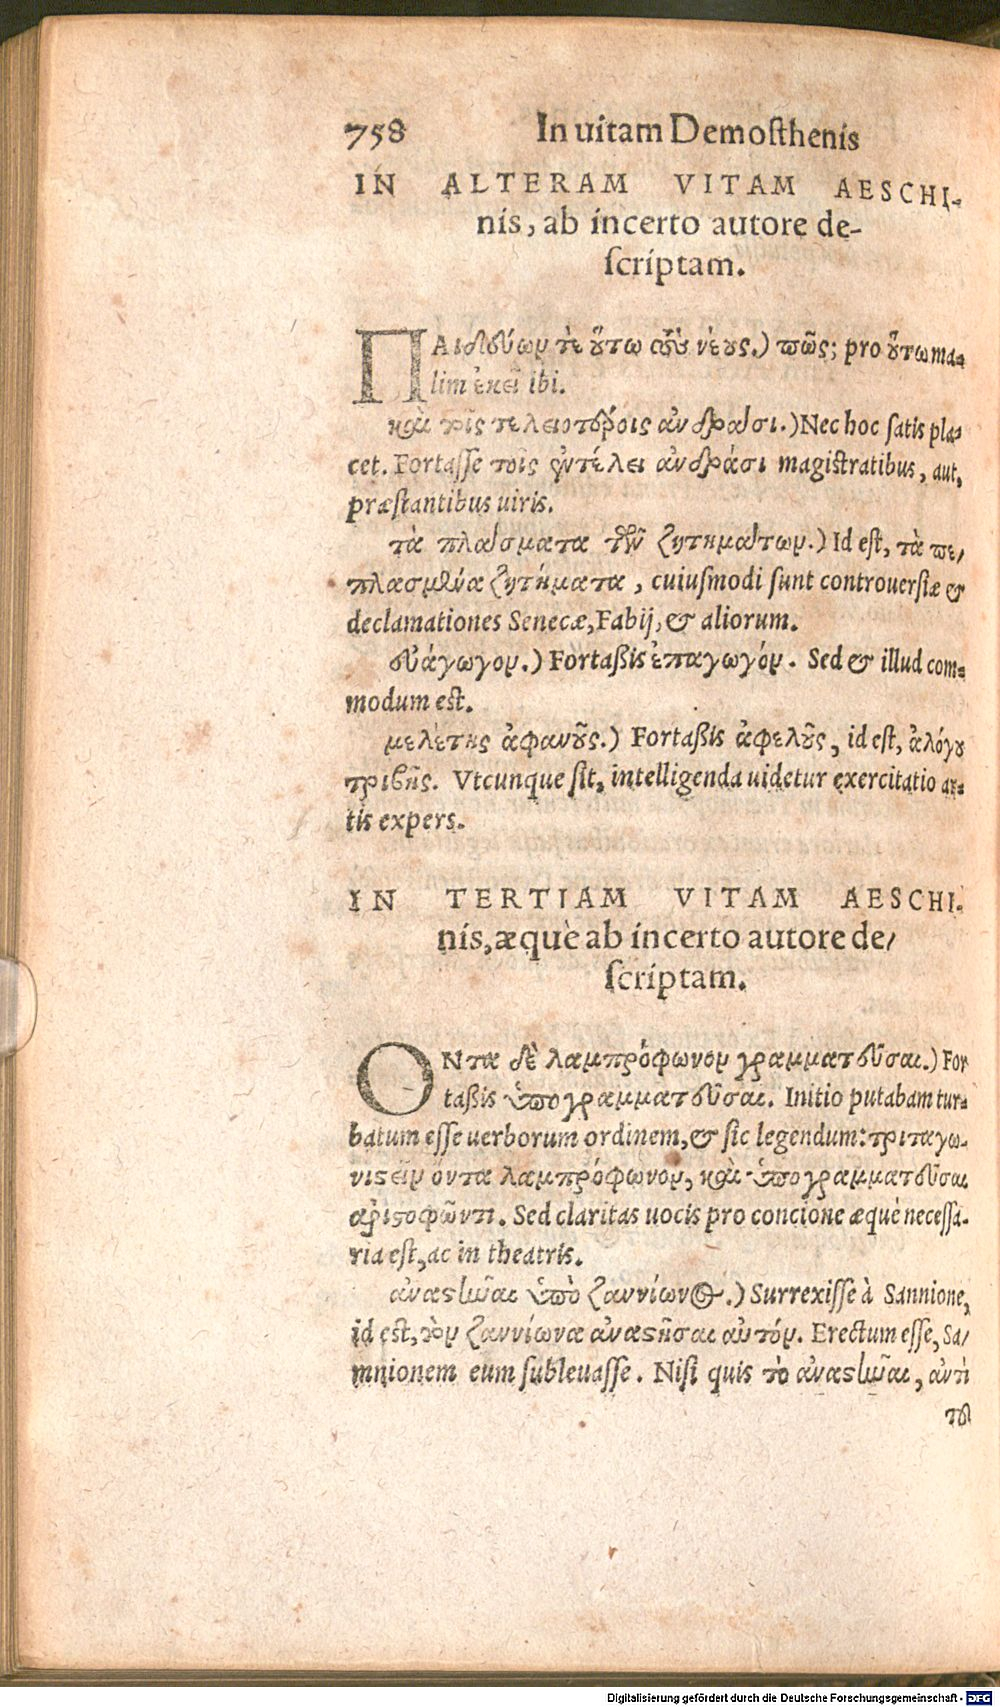 758 In uitam Demosthenis
IN ALTERAM VITAM AESCHI-
nis, ab incerto autore de-
scriptam.
ΠΑιδεύων τε οὕτω τοὺς νέους.) πῶς; pro οὕτω ma-
lim ἐκεῖ ibi.
καὶ τοῖς τελειοτέροις ἀνδράσι.) Nec hoc satis pla-
cet. Fortasse τοῖς ἐν τέλει ἀνδράσι magistratibus, aut,
præstantibus uiris.
τὰ πλάσματα τῶν ζητημάτων.) Id est, τὰ πε-
πλασμένα ζητήματα, cuiusmodi sunt controuersiæ &
declamationes Senecæ, Fabij, & aliorum.
εὐάγωγον.) Fortaßis ἐπαγωγόν. Sed & illud com-
modum est.
μελέτης ἀφανοῦς.) Fortaßis ἀφελοῦς, id est, ἀλόγου
τριβῆς. Vtcunque sit, intelligenda uidetur exercitatio ar-
tis expers.
IN TERTIAM VITAM AESCHI-
nis, æquè ab incerto autore de-
scriptam.
ΟΝτα δὲ λαμπρόφωνον γραμματεῦσαι.) For
taßis ὑπογραμματεῦσαι. Initio putabam tur-
batum esse uerborum ordinem, & sic legendum: τριταγω-
νιστεῖν ὄντα λαμπρόφωνον, καὶ ὑπογραμματεῦσαι
ἀριστοφῶντι. Sed claritas uocis pro concione æquè necessa-
ria est, ac in theatris.
ἀναστῆναι ὑπὸ ζαννίωνος.) Surrexisse à Sannione,
id est, τὸν ζαννίωνα ἀναστῆσαι αὐτόν. Erectum esse, Sa-
mnionem eum subleuasse. Nisi quis τὸ ἀναστῆναι, ἀντὶ
τοῦ
Digitalisierung gefördert durch die Deutsche Forschungsgemeinschaft - DFG